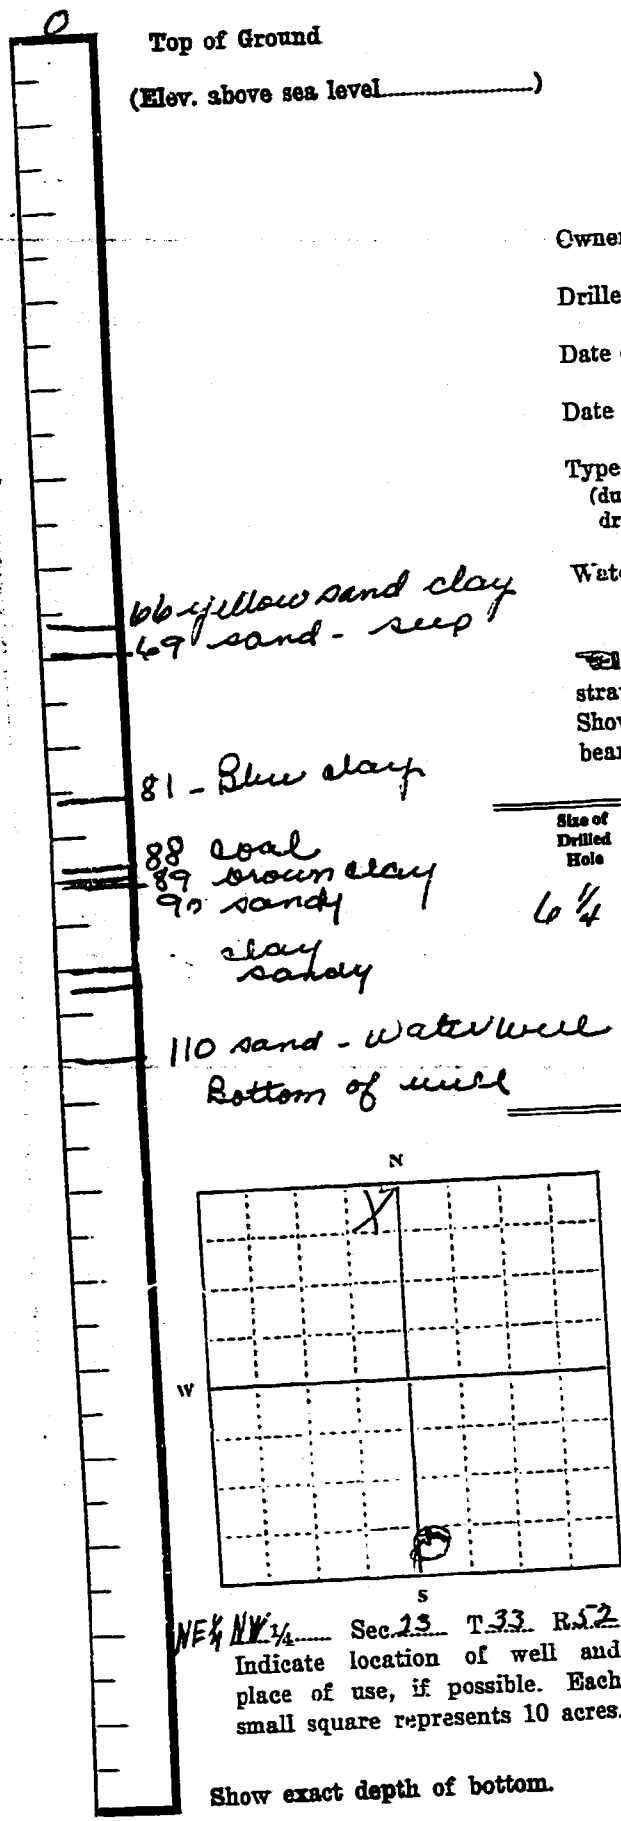 0
Top of Ground
(Elev. above sea level....................)
Owner
Drille
Date
Date
Type
(du
dr
Wate
66 yellow sand clay
69 sand - seep
stra
Show
bear
81 - Blue clay
Size of
Drilled
Hole
88 coal
89 brown clay
90 sandy
6 1/4
clay
sandy
110 sand - water well
Bottom of well
N
W
S
NE¼ NW ¼...... Sec. 23 T. 33 R. 52
Indicate location of well and
place of use, if possible. Each
small square represents 10 acres.
Show exact depth of bottom.